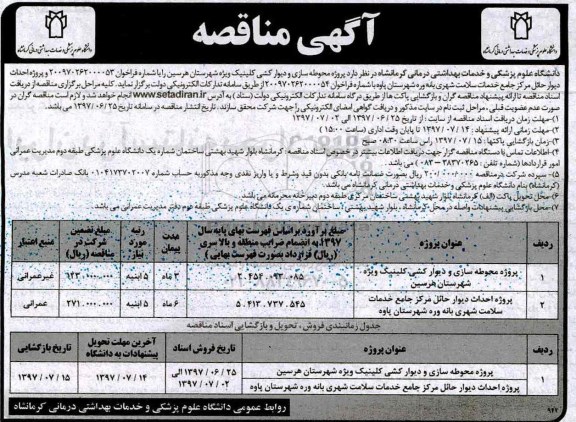 آگهی مناقصه
دانشگاه علوم پزشکی و خدمات بهداشتی درمانی کرمانشاه
دانشگاه علوم پزشکی و خدمات بهداشتی درمانی کرمانشاه در نظر دارد پروژه محوطه سازی و دیوار کشی کلینیک ویژه شهرستان هرسین را با شماره فراخوان ۲۰۰۹۷۰۲۶۲۰۰۰۰۵۳ و پروژه احداث
دیوار حائل مرکز جامع خدمات سلامت شهری بانه وره شهرستان پاوه با شماره فراخوان ۲۰۰۹۷۰۲۶۲۰۰۰۰۵۴ از طریق سامانه تدارکات الکترونیکی دولت برگزار نماید. کلیه مراحل برگزاری مناقصه از دریافت
اسناد مناقصه تا ارائه پیشنهاد مناقصه گران و بازگشایی پاکت ها از طریق درگاه سامانه تدارکات الکترونیکی دولت (ستاد) به آدرس www.setadiran.ir انجام خواهد شد و لازم است مناقصه گران در
صورت عدم عضویت قبلی، مراحل ثبت نام در سایت مذکور و دریافت گواهی امضای الکترونیکی را جهت شرکت محقق سازند. تاریخ انتشار مناقصه در سامانه تاریخ ۱۳۹۷/۰۶/۲۵ می باشد.
۱) مهلت زمانی دریافت اسناد مناقصه از سایت : از تاریخ ۱۳۹۷/۰۶/۲۵ الی ۱۳۹۷/۰۷/۰۲
۲) مهلت زمانی ارائه پیشنهاد : ۱۳۹۷/۰۷/۱۴ تا پایان وقت اداری (ساعت ۱۵:۰۰)
۳) زمان بازگشایی پاکتها: ۱۳۹۷/۰۷/۱۵ راس ساعت ۰۸:۳۰ صبح
۴) اطلاعات تماس با دستگاه مناقصه گزار جهت دریافت اطلاعات بیشتر در خصوص اسناد مناقصه: کرمانشاه بلوار شهید بهشتی ساختمان شماره یک دانشگاه علوم پزشکی طبقه دوم مدیریت عمرانی
امور قراردادها (شماره تلفن : ۳۸۳۷۰۲۶۵ – ۰۸۳) می باشد.
۵) سپرده شرکت در مناقصه ریال بصورت ضمانت نامه بانکی بدون قید وشرط و یا واریز نقدی وجه مذکوربه حساب شماره ۰۱۰۴۱۷۳۷۰۲۰۰۷ بانک صادرات شعبه مدرس
(کرمانشاه) بنام دانشگاه علوم پزشکی و خدمات بهداشتی درمانی کرمانشاه می باشد.
۶) محل تحویل پاکت (الف) کرمانشاه بلوار شهید بهشتی ساختمان مرکزی طبقه دوم دبیرخانه محرمانه می باشد.
۷) محل بازگشایی پیشنهادات واصله در محل کرمانشاه، بلوار شهید بهشتی ساختمان شماره یک دانشگاه علوم پزشکی طبقه دوم دفتر مدیریت عمرانی می باشد.
ردیف | عنوان پروژه | مبلغ برآورد براساس فهرست بهای پایه سال ۱۳۹۷ به انضمام ضرایب منطقه و بالا سری (ریال) قرارداد بصورت فهرست بهایی | مدت پیمان | رتبه مورد نیاز | مبلغ تضمین شرکت در مناقصه (ریال) | منبع اعتبار
۱ | پروژه محوطه سازی و دیوار کشی کلینیک ویژه شهرستان هرسین | ۲.۴۵۶.۰۹۳.۰۸۵ | ۳ ماه | ۵ ابنیه | ۱۴۳.۰۰۰.۰۰۰ | غیرعمرانی
۲ | پروژه احداث دیوار حائل مرکز جامع خدمات سلامت شهری بانه وره شهرستان پاوه | ۵.۴۱۳.۷۳۷.۵۴۵ | ۶ ماه | ۵ ابنیه | ۲۷۱.۰۰۰.۰۰۰ | عمرانی
جدول زمانبندی فروش ، تحویل و بازگشایی اسناد مناقصه
ردیف | عنوان پروژه | تاریخ فروش اسناد | آخرین مهلت تحویل پیشنهادات به دانشگاه | تاریخ بازگشایی
۱ | پروژه محوطه سازی و دیوار کشی کلینیک ویژه شهرستان هرسین پروژه احداث دیوار حائل مرکز جامع خدمات سلامت شهری بانه وره شهرستان پاوه | ۱۳۹۷/۰۶/۲۵ الی ۱۳۹۷/۰۷/۰۲ | ۱۳۹۷/۰۷/۱۴ | ۱۳۹۷/۰۷/۱۵
روابط عمومی دانشگاه علوم پزشکی و خدمات بهداشتی درمانی کرمانشاه
۹۴۷